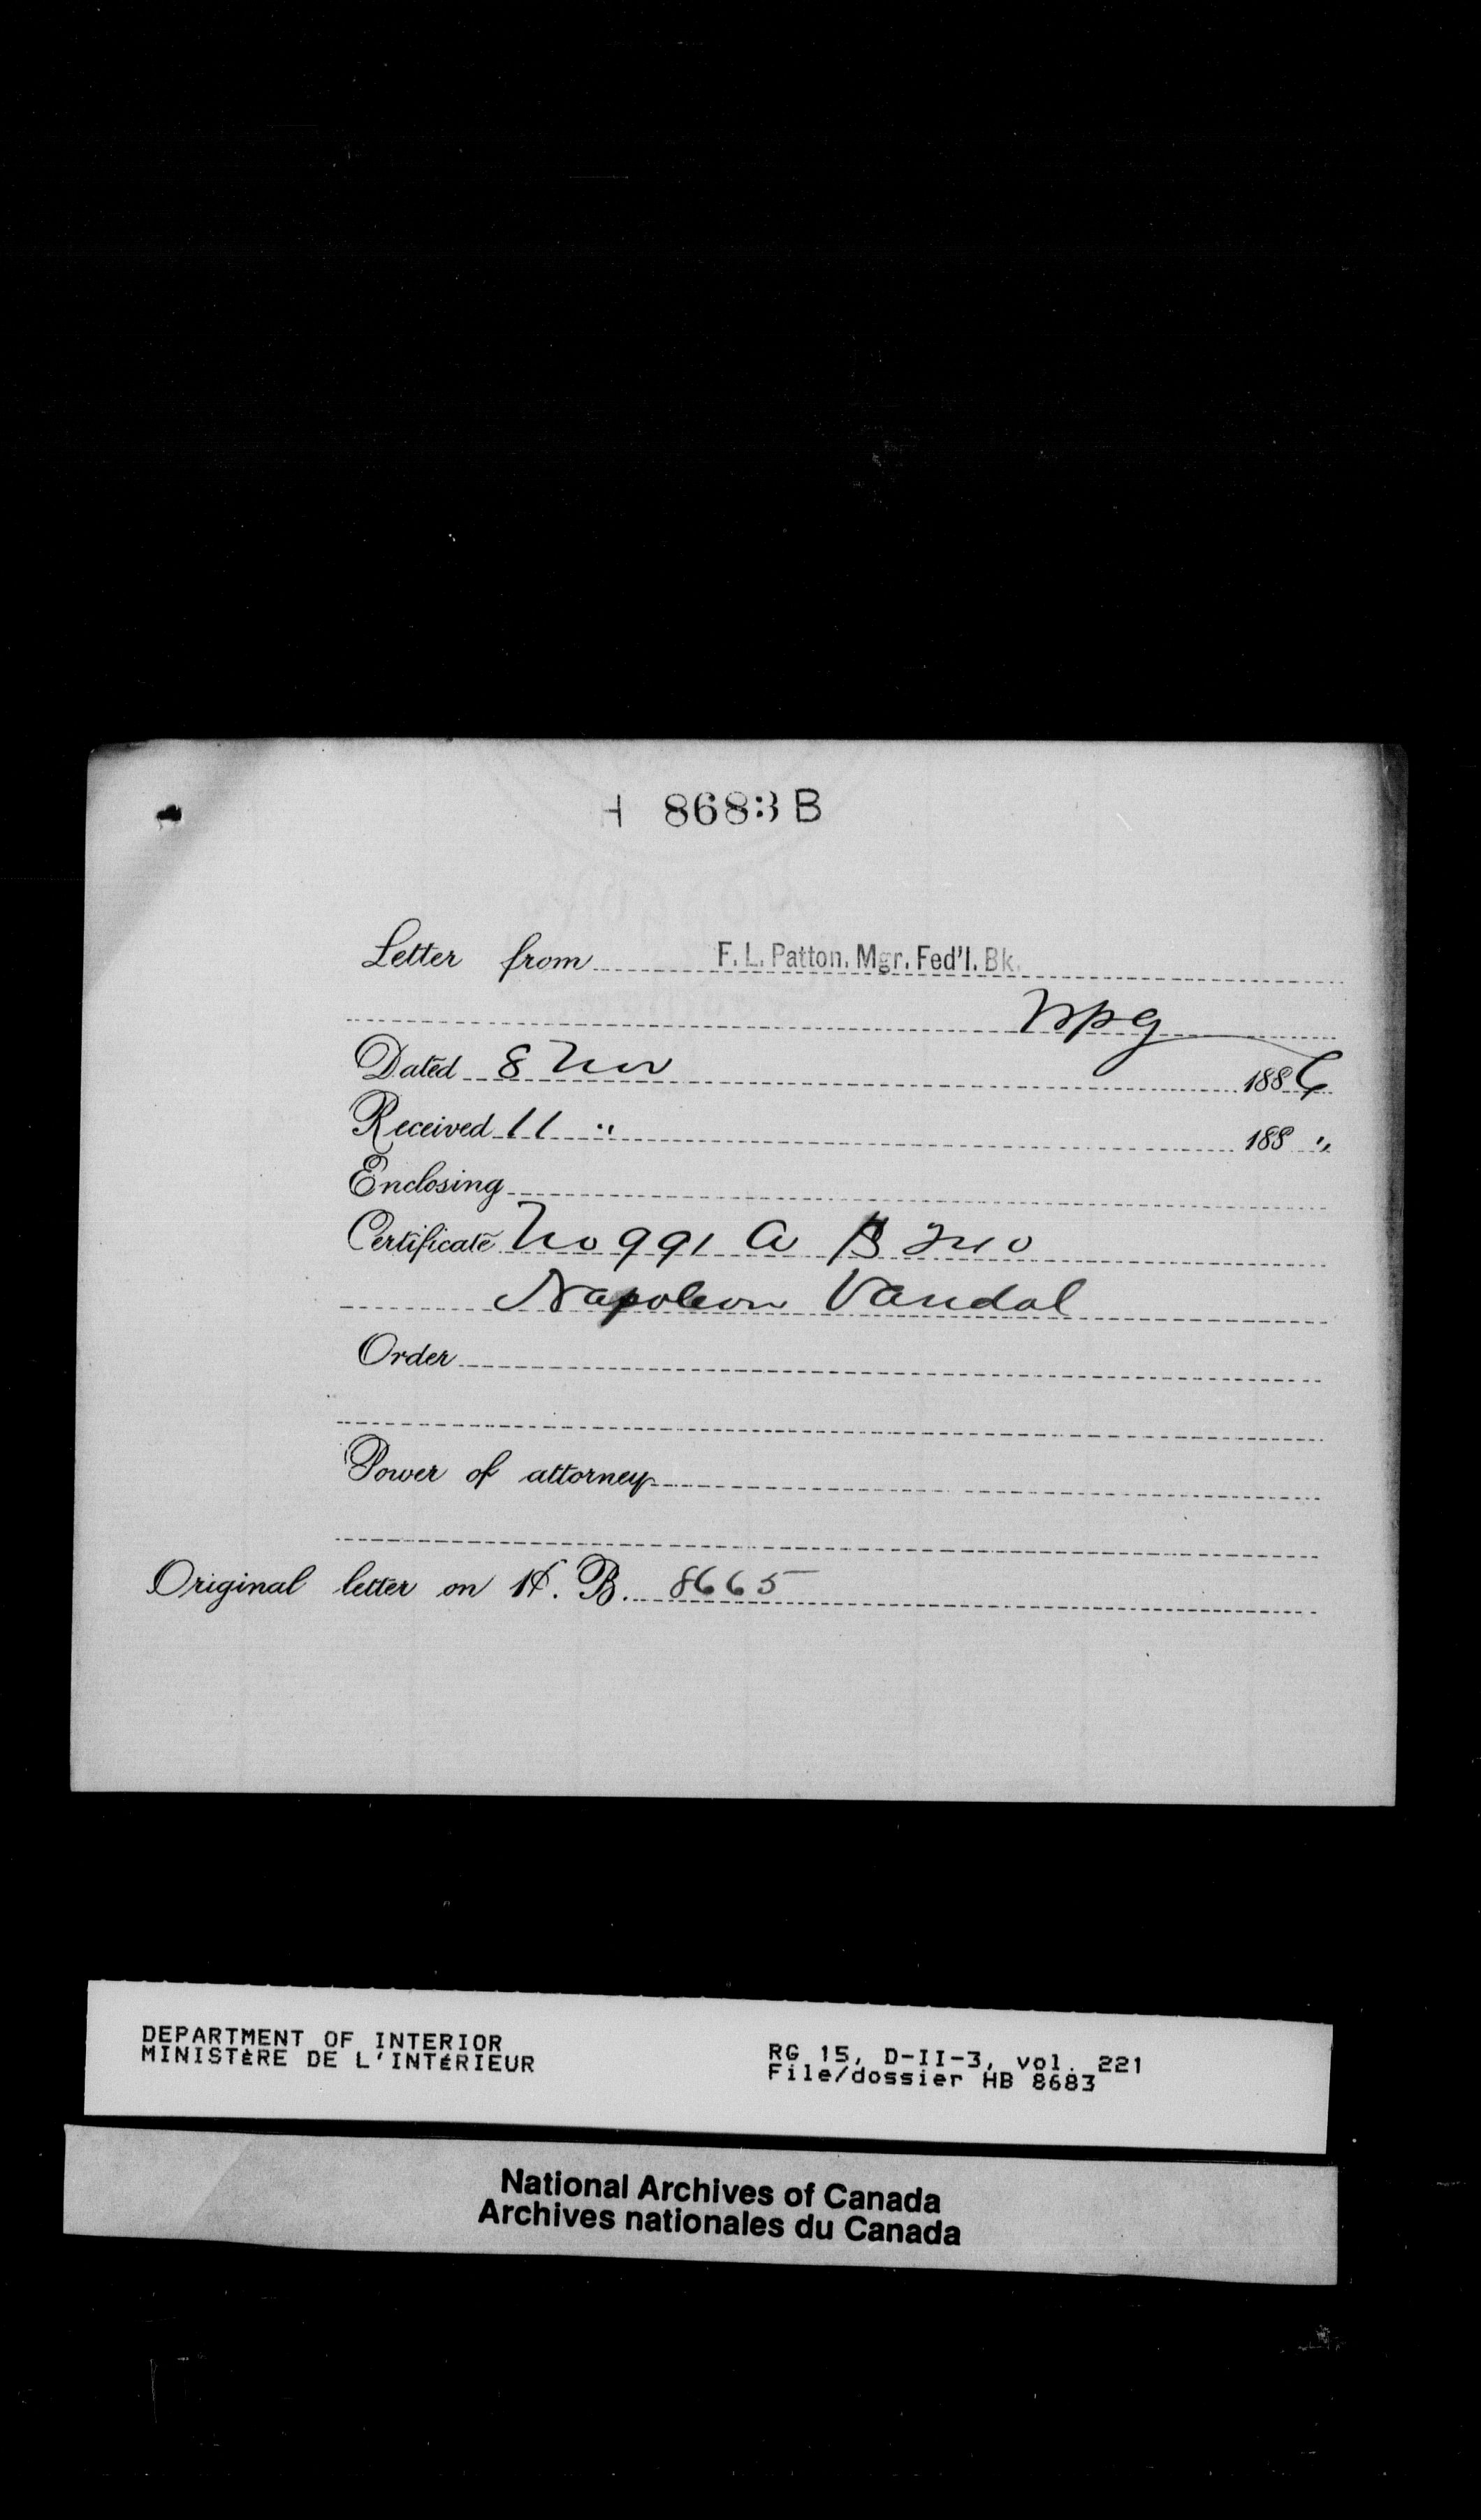 H 8683 B
Letter from F. L. Patton. Mgr. Fed'l. Bk.
Wpg
Dated 8 Nov 1886
Received 11 " 188 "
Enclosing
Certificate No 991 A $ 240
Napoleon Vandal
Order
Power of attorney
Original letter on H. B. 8665
DEPARTMENT OF INTERIOR
MINISTÈRE DE L'INTÉRIEUR
RG 15, D-II-3, vol. 221
File/dossier HB 8683
National Archives of Canada
Archives nationales du Canada